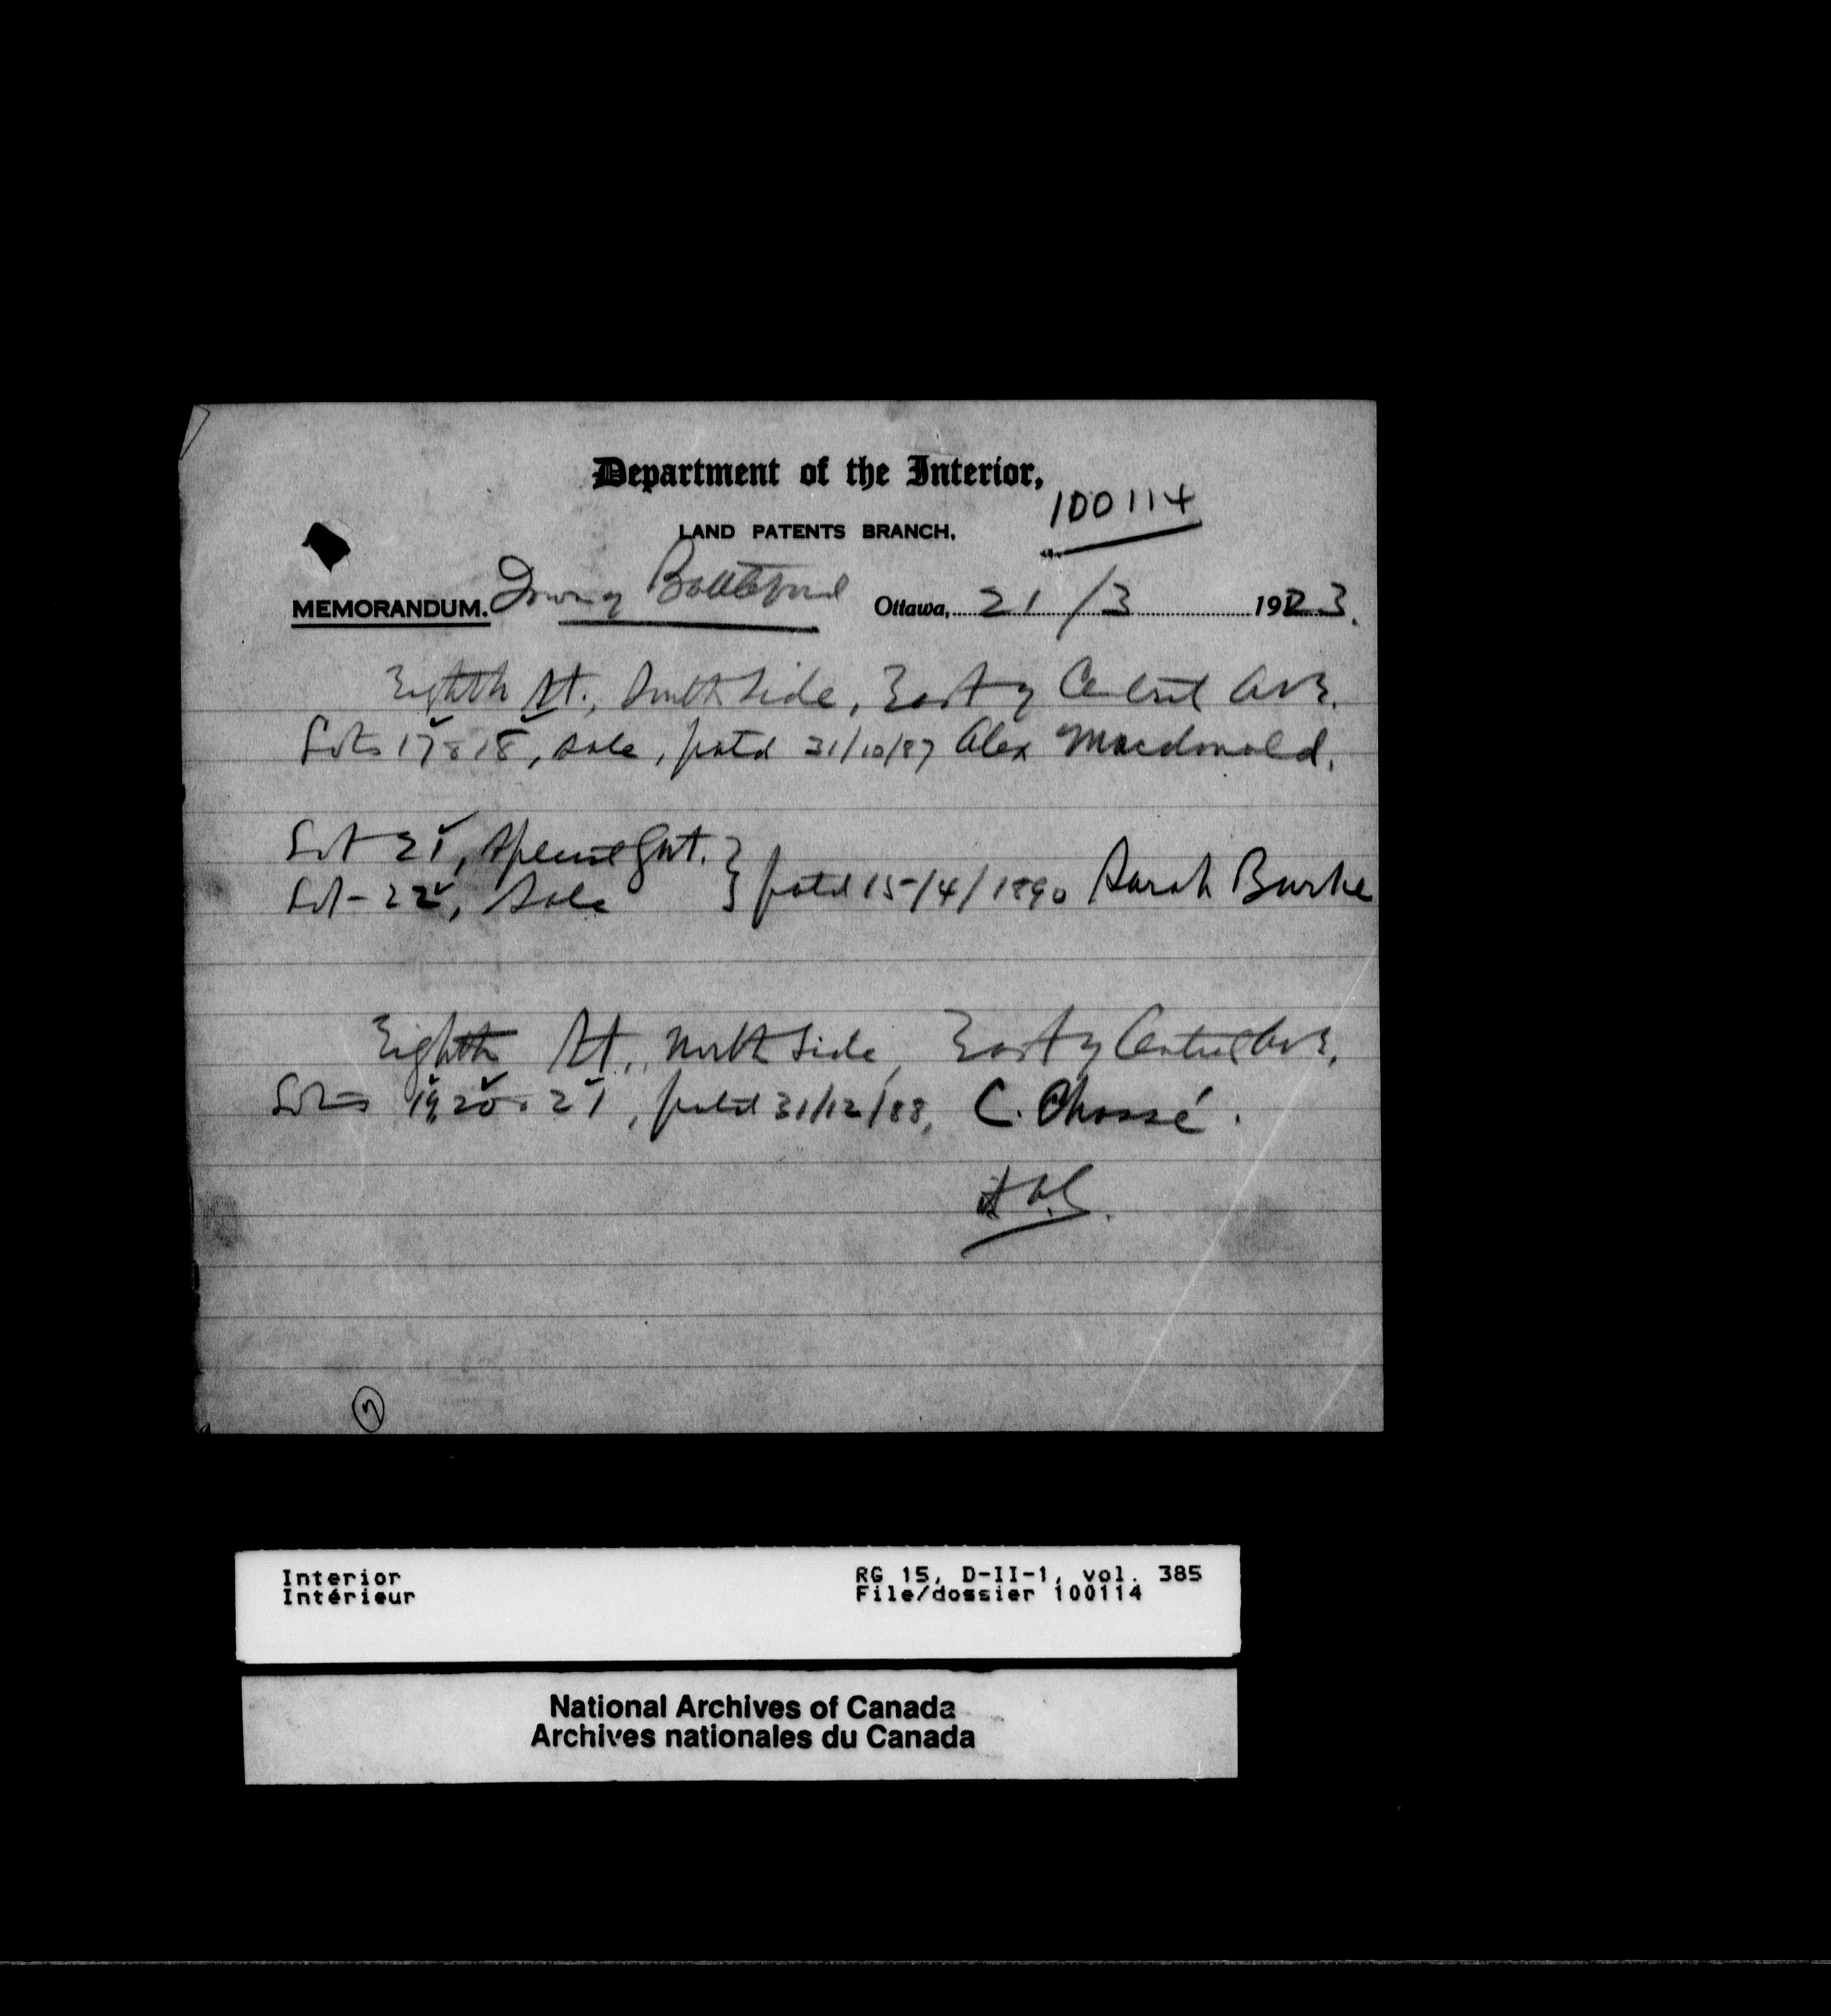 Department of the Interior,
100114
LAND PATENTS BRANCH,
MEMORANDUM. Town of Battleford Ottawa, 21/3 1923.
Eighth St., South Side, East of Central Ave.
Lots 17 & 18, sale, patd 31/10/87 Alex Macdonald.
Lot 21, Special Grt. } patd 15/4/1890 Sarah Burke
Lot 22, Sale
Eighth St., North Side, East of Central Ave.
Lots 19, 20 & 21, patd 31/12/88, C. Chassé.
7
Interior RG 15, D-II-1, vol. 385
Intérieur File/dossier 100114
National Archives of Canada
Archives nationales du Canada